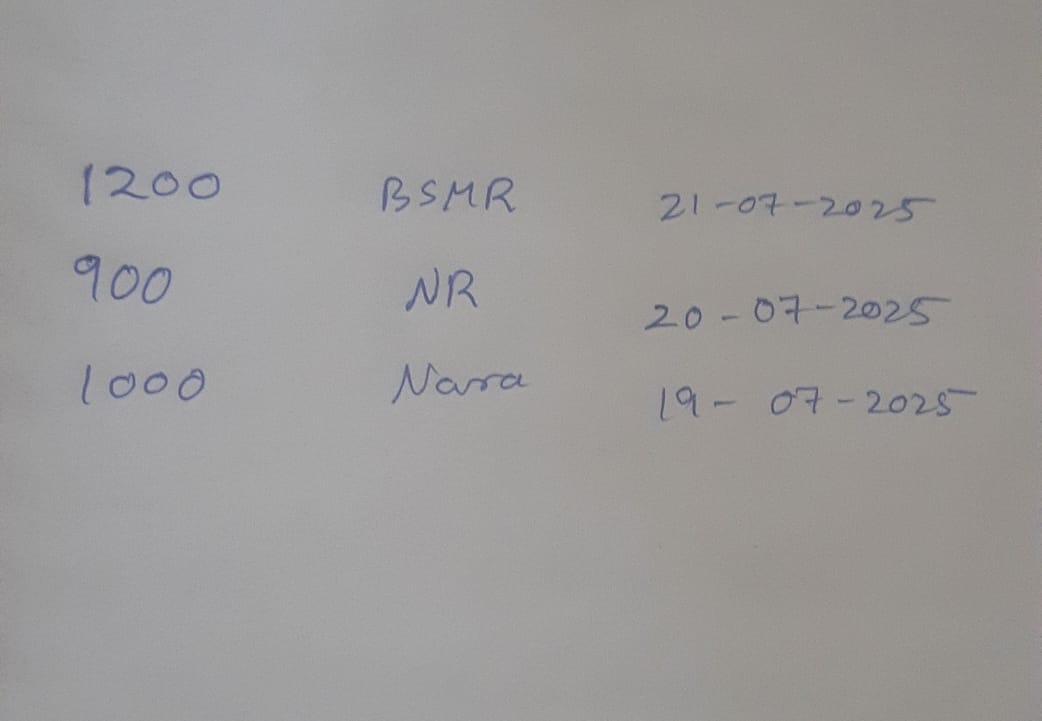 1200 BSMR 21-07-2025
900 NR 20-07-2025
1000 Nara 19-07-2025